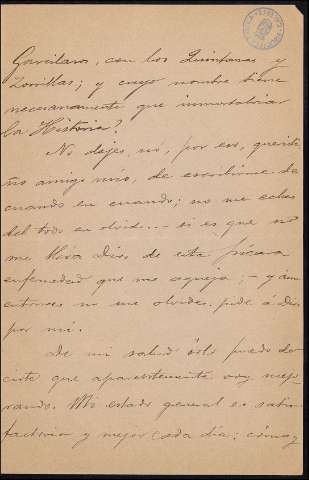 Garcilasos, con los Quintanas y
Zorrillas; y cuyo nombre tiene
necesariamente que inmortalizar
la Historia?
No dejes, nó, por eso, queridí
ño amigo mío, de escribirme de
cuando en cuando; no me eches
del todo en olvido... si es que no
me lleva Dios de esta pícara
enfermedad que me aqueja; - y aun
entonces no me olvides: pide á Dios
por mí.
De mi salud sólo puedo de
cirte que aparentemente voy mejo
rando. Mi estado general es satis
factorio y mejor cada día; cómo y